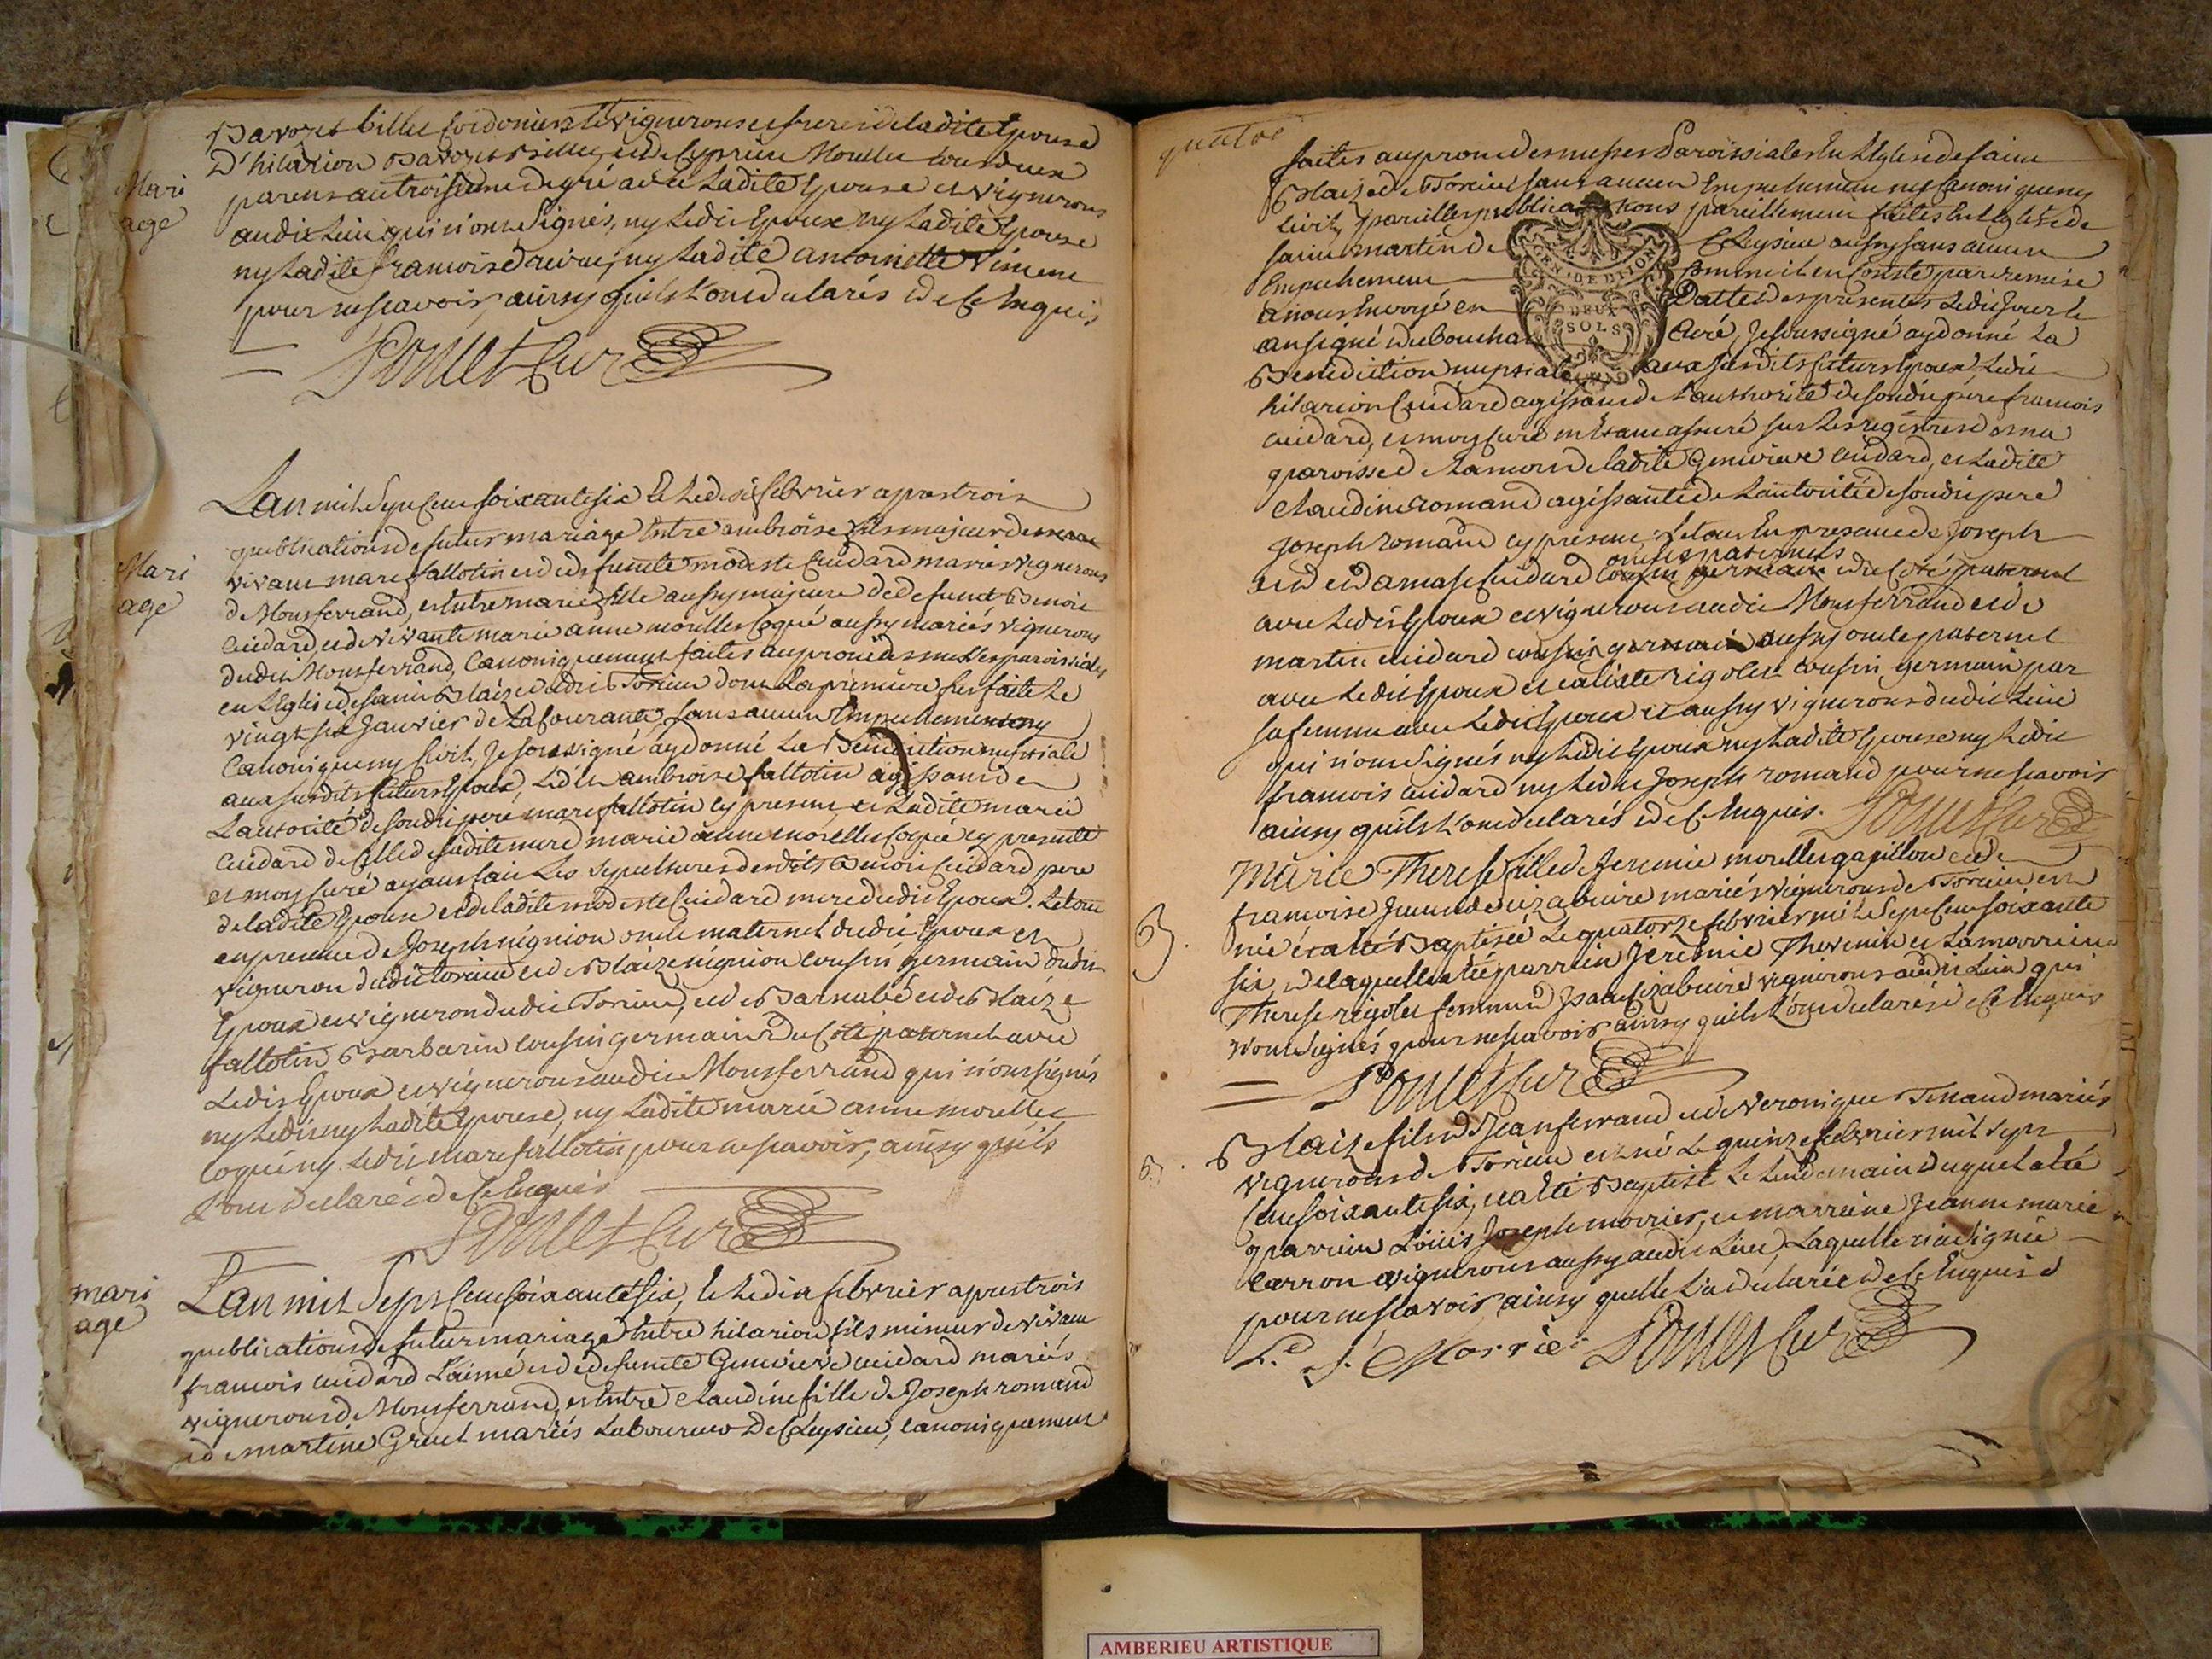 Bavozet billet cordoniers et vignerons et freres de ladite Epouse
D'hilarion Bavozet billet, et de Cyprien Morellet tous deux
parens au troisieme degré avec Ladite Epouse et vignerons
audit Lieu qui n'ont Signés, ny Ledit Epoux ny Ladite Epouse
ny Ladite francoise ny Ladite antoinette
pour ne scavoir, ainsy quils L'ont declarés de ce Enquis
Mari
age
Poncet Curé
Mari
age
Lan mil Sept Cent soixante six et Le dix febvrier apres trois
publications de futur mariage Entre ambroise fils majeur de
vivant marc fallotin et de defunte modeste Cuidard mariés vignerons
de Monferrand, et Entre marie fille aussy majeure de defunt Benoit
Cuidard, et de vivante marie anne morellet Coqué aussy mariés vignerons
dudit Monferrand, Canoniquement faites au prone des messes paroissiales
en L'Eglise de saint Blaize dudit Torcieu dont La premiere fut faite Le
vingt six Janvier de La Courante, sans aucun Empechement ny
Canonique ny Civil, Je soussigné ay donné La Benediction nuptiale
aux susdits futurs Epoux, Ledit ambroise fallotin agissant de
L'autorité de sondit pere marc fallotin cy present, et Ladite marie
Cuidard de Celle de sadite mere marie anne morellet Coqué cy presente
et moy Curé ayant fait Les sepultures desdits Benoit Cuidard pere
de ladite Epouse et de ladite modeste Cuidard mere dudit Epoux. Le tout
en presence de Joseph nignion oncle maternel dudit Epoux et
vigneron dudit Torcieu et de Blaize nignion cousin germain dudit
Epoux et vigneron dudit Torcieu, et de Barnabé et de Blaize
fallotin Barbarin cousin germains du Coté paternel avec
Ledit Epoux et vignerons audit Monferrand qui n'ont signés
ny Ledit ny Ladite Epouse, ny Ladite marie anne morellet
Coqué ny Ledit marc fallotin pour ne scavoir, ainsy quils
L'ont declaré de ce Enquis
Poncet Curé
mari
age
Lan mil Sept Cent soixante six, et Le dix febvrier apres trois
publications de futur mariage Entre hilarion fils mineur de vivant
francois cuidard L'ainé et de defunte Genevieve cuidard mariés
vignerons de Monferrand, et Entre claudine fille de Joseph romand
et de martine Gruel mariés Laboureurs De Cleysieu, canoniquement
faites au prone des messes Paroissiales En L'Eglise de saint
Blaize de Torcieu sans aucun Empechement ny Canonique ny
Civil, pareilles publications pareillement faites En L'Eglise de
saint martin de Cleysieu aussy sans aucun
Empechement Comme il en Conste par remise
a nous Envoyé en Datte des presentes Ledit Jour et
an signé Curé, Je soussigné ay donné La
Benediction nuptiale aux susdits futurs Epoux, Ledit
GEN · DE DIJON
DEUX
SOLS
hilarion Cuidard agissant de L'authorité de sondit pere francois
cuidard, et moy Curé m'étant assuré sur Les registres de ma
paroisse de La mort de ladite Genevieve cuidard, et Ladite
claudine romand agissante de L'autorité de sondit pere
Joseph romand cy present: Le tout En presence de Joseph
oncles paternels
et de damase Cuidard cousin germain du Coté paternel
avec Ledit Epoux et vignerons audit Monferrand et de
martin cuidard cousin germain aussy oncle paternel
avec Ledit Epoux et calixte rigolet cousin germain par
sa femme avec Ledit Epoux et aussy vignerons dudit Lieu
qui n'ont Signés ny Ledit Epoux ny Ladite Epouse ny Ledit
francois cuidard ny Ledit Joseph romand pour ne scavoir
ainsy quils L'ont declarés de ce Enquis. Poncet Curé
Marie Therese fille de Jeremie morellet papillon et de
francoise mariés vignerons de Torcieu est
née et a été Baptisée Le quatorze febvrier mil Sept Cent soixante
six, de laquelle a été parrein Jeremie Thevenin et La marreine
Therese rigolet femme d'Isaac vignerons audit Lieu qui
n'ont Signés pour ne scavoir ainsy quils L'ont declarés de ce Enquis
Poncet Curé
B
Blaize fils de Jean ferrand et de veronique Tenand mariés
vignerons de Torcieu est né Le quinze febvrier mil Sept
Cent soixante six, et a été Baptisé Le Lendemain duquel a été
parrein Loüis Joseph morrier, et marreine Jeanne marie
carron vignerons aussy audit Lieu, Laquelle n'a Signée
pour ne scavoir ainsy quelle L'a declarée de ce Enquise
B
L. J. Morrier Poncet Curé
AMBERIEU ARTISTIQUE